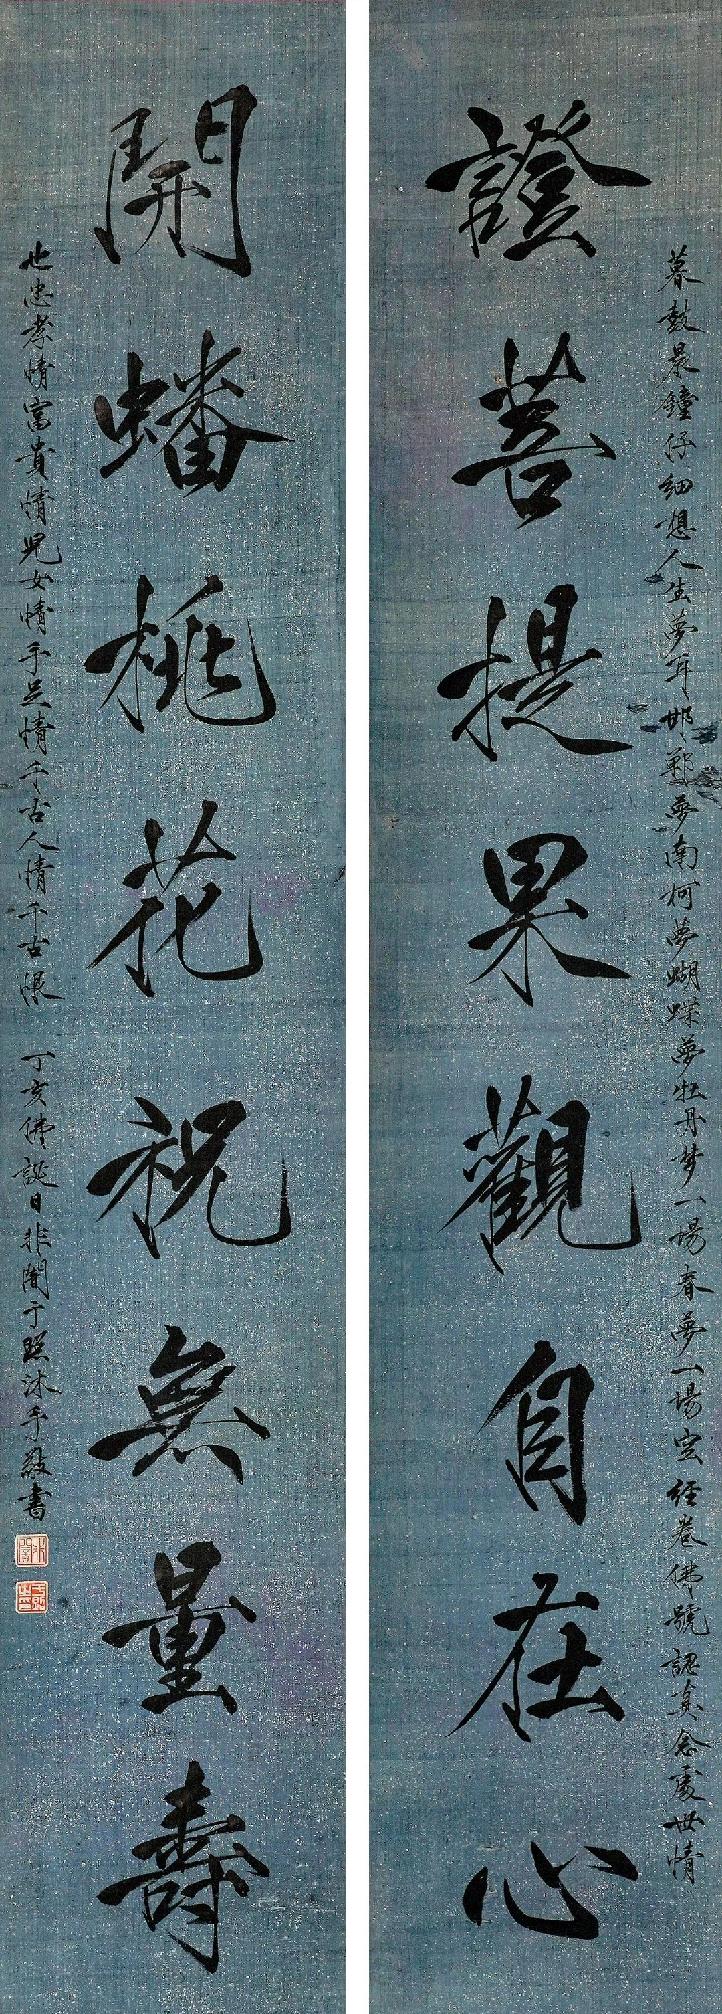 暮鼓晨鐘仔細想人生夢耳邯鄲夢南柯夢蝴蝶夢牡丹梦一場春夢一場空經卷佛號認真念處世情
證菩提果觀自在心
開蟠桃花祝無量壽
也忠孝情富貴情兒女情手足情千古人情千古恨 丁亥佛誕日非闇于照沐手敬書